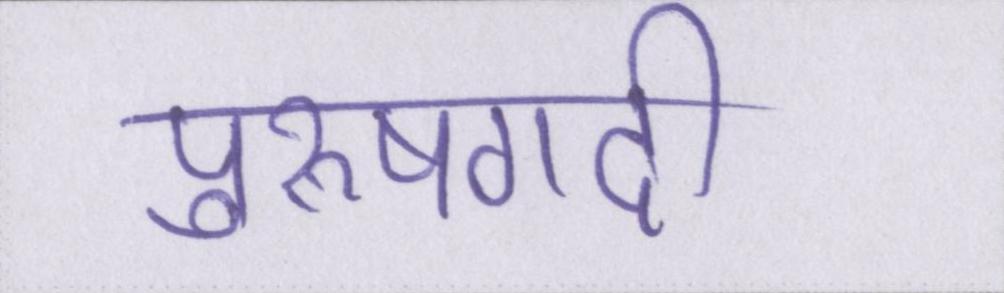 पुरुषगदी